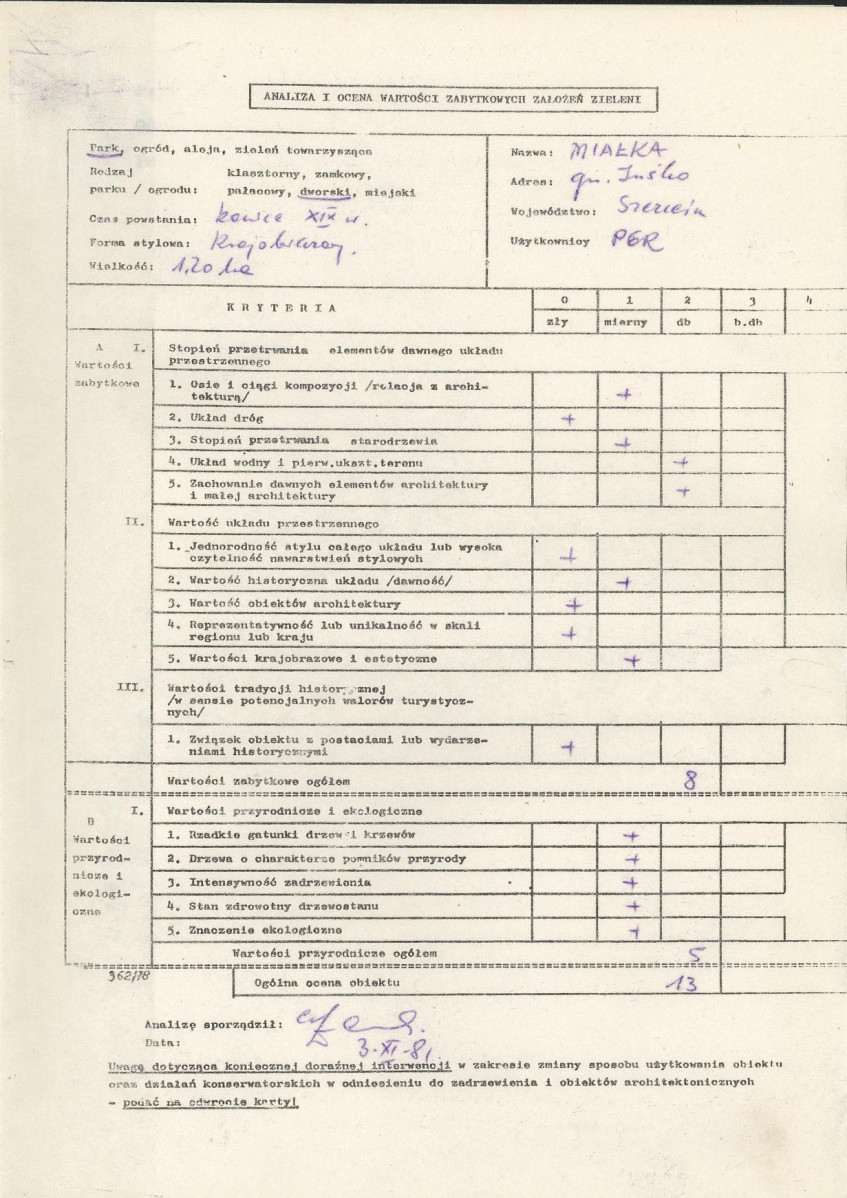 ANALIZA I OCENA WARTOŚCI ZABYTKOWYCH ZAŁOŻEŃ ZIELENI
Park, ogród, aleja, zieleń towarzysząca
Rodzaj klasztorny, zamkowy,
parku / ogrodu: pałacowy, dworski, miejski
Czas powstania: koniec XIX w.
Forma stylowa: Krajobrazowy.
Wielkość: 1,20 ha
Nazwa: MIAŁKA
Adres: gm. Ińsko
Województwo: Szczecin
Użytkownicy PGR
KRYTERIA 0 1 2 3 4
zły mierny db b.db
A I. Stopień przetrwania elementów dawnego układu
Wartości przestrzennego
zabytkowe
1. Osie i ciągi kompozycji /relacja z archi-
tekturą/ +
2. Układ dróg +
3. Stopień przetrwania starodrzewia +
4. Układ wodny i pierw.ukszt.terenu +
5. Zachowanie dawnych elementów architektury
i małej architektury +
II. Wartość układu przestrzennego
1. Jednorodność stylu całego układu lub wysoka
czytelność nawarstwień stylowych +
2. Wartość historyczna układu /dawność/ +
3. Wartość obiektów architektury +
4. Reprezentatywność lub unikalność w skali
regionu lub kraju +
5. Wartości krajobrazowe i estetyczne +
III. Wartości tradycji historycznej
/w sensie potencjalnych walorów turystycz-
nych/
1. Związek obiektu z postaciami lub wydarze-
niami historycznymi +
Wartości zabytkowe ogółem 8
B I. Wartości przyrodnicze i ekologiczne
Wartości
przyrod-
nicze i
ekologi-
czne
1. Rzadkie gatunki drzew i krzewów +
2. Drzewa o charakterze pomników przyrody +
3. Intensywność zadrzewienia +
4. Stan zdrowotny drzewostanu +
5. Znaczenie ekologiczne +
Wartości przyrodnicze ogółem 5
962/78
Ogólna ocena obiektu 13
Analizę sporządził:
Data: 3.XI.81
Uwagę dotycząca koniecznej doraźnej interwencji w zakresie zmiany sposobu użytkowania obiektu
oraz działań konserwatorskich w odniesieniu do zadrzewienia i obiektów architektonicznych
- podać na odwrocie karty!